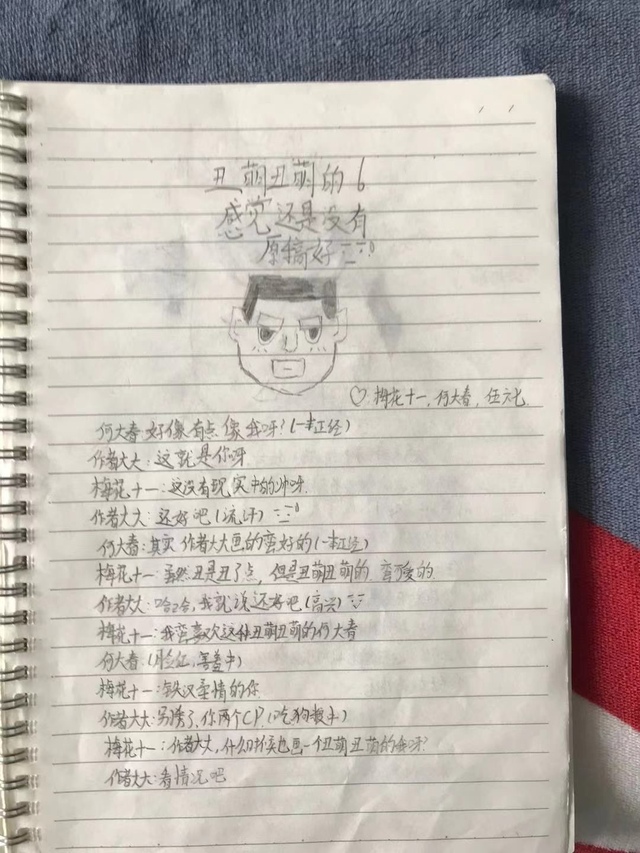 丑萌丑萌的6
感觉还是没有
原稿好
♡:梅花十一,何大春,伍六七
何大春:好像有点像我呀?(一本正经)
作者大大:这就是你呀
梅花十一:这没有现实中的帅呀
作者大大:还好吧(流汗)
何大春:其实作者大大画的蛮好的(一本正经)
梅花十一:虽然丑是丑了点,但是丑萌丑萌的 蛮可爱的
作者大大:哈哈,我就说还好吧(高兴)
梅花十一:我蛮喜欢这种丑萌丑萌的何大春
何大春:(脸红,害羞中)
梅花十一:铁汉柔情的你
作者大大:别腻了,你两个CP(吃狗粮中)
梅花十一:作者大大,什么时候也画一个丑萌丑萌的 呀?
作者大大:看情况吧